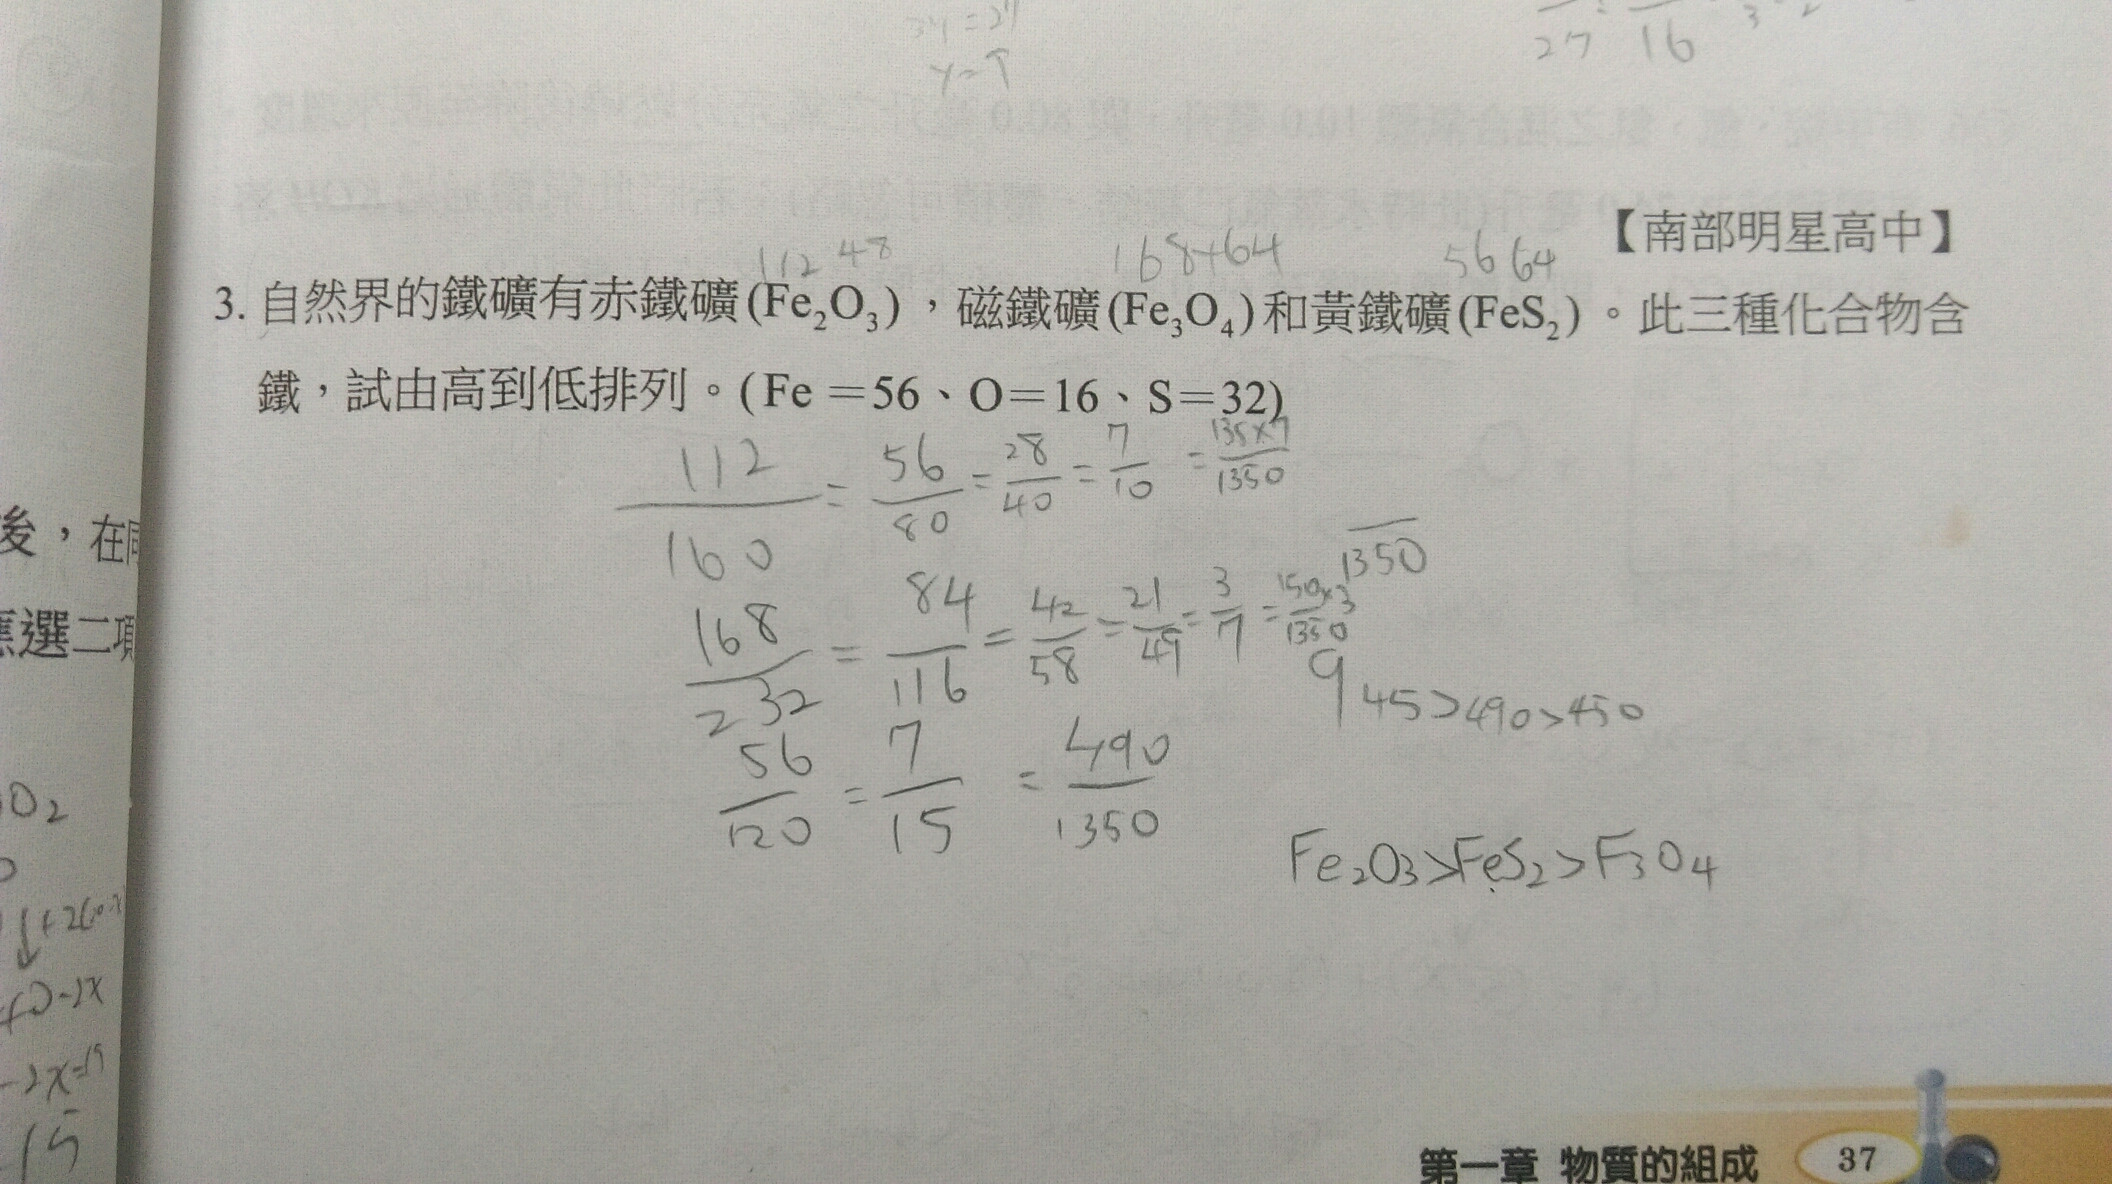 27 16
【南部明星高中】
112 48 168+64 56 64
3. 自然界的鐵礦有赤鐵礦(Fe₂O₃),磁鐵礦(Fe₃O₄)和黃鐵礦(FeS₂)。此三種化合物含
鐵,試由高到低排列。(Fe=56、O=16、S=32)
112/160 = 56/80 = 28/40 = 7/10 = 135×7/1350
1350
168/232 = 84/116 = 42/58 = 21/49 = 3/7 = 150×3/1350
945>490>450
56/120 = 7/15 = 490/1350
Fe₂O₃>FeS₂>F₃O₄
後,在
選二項
O₂
-2x=15
15
第一章 物質的組成 37